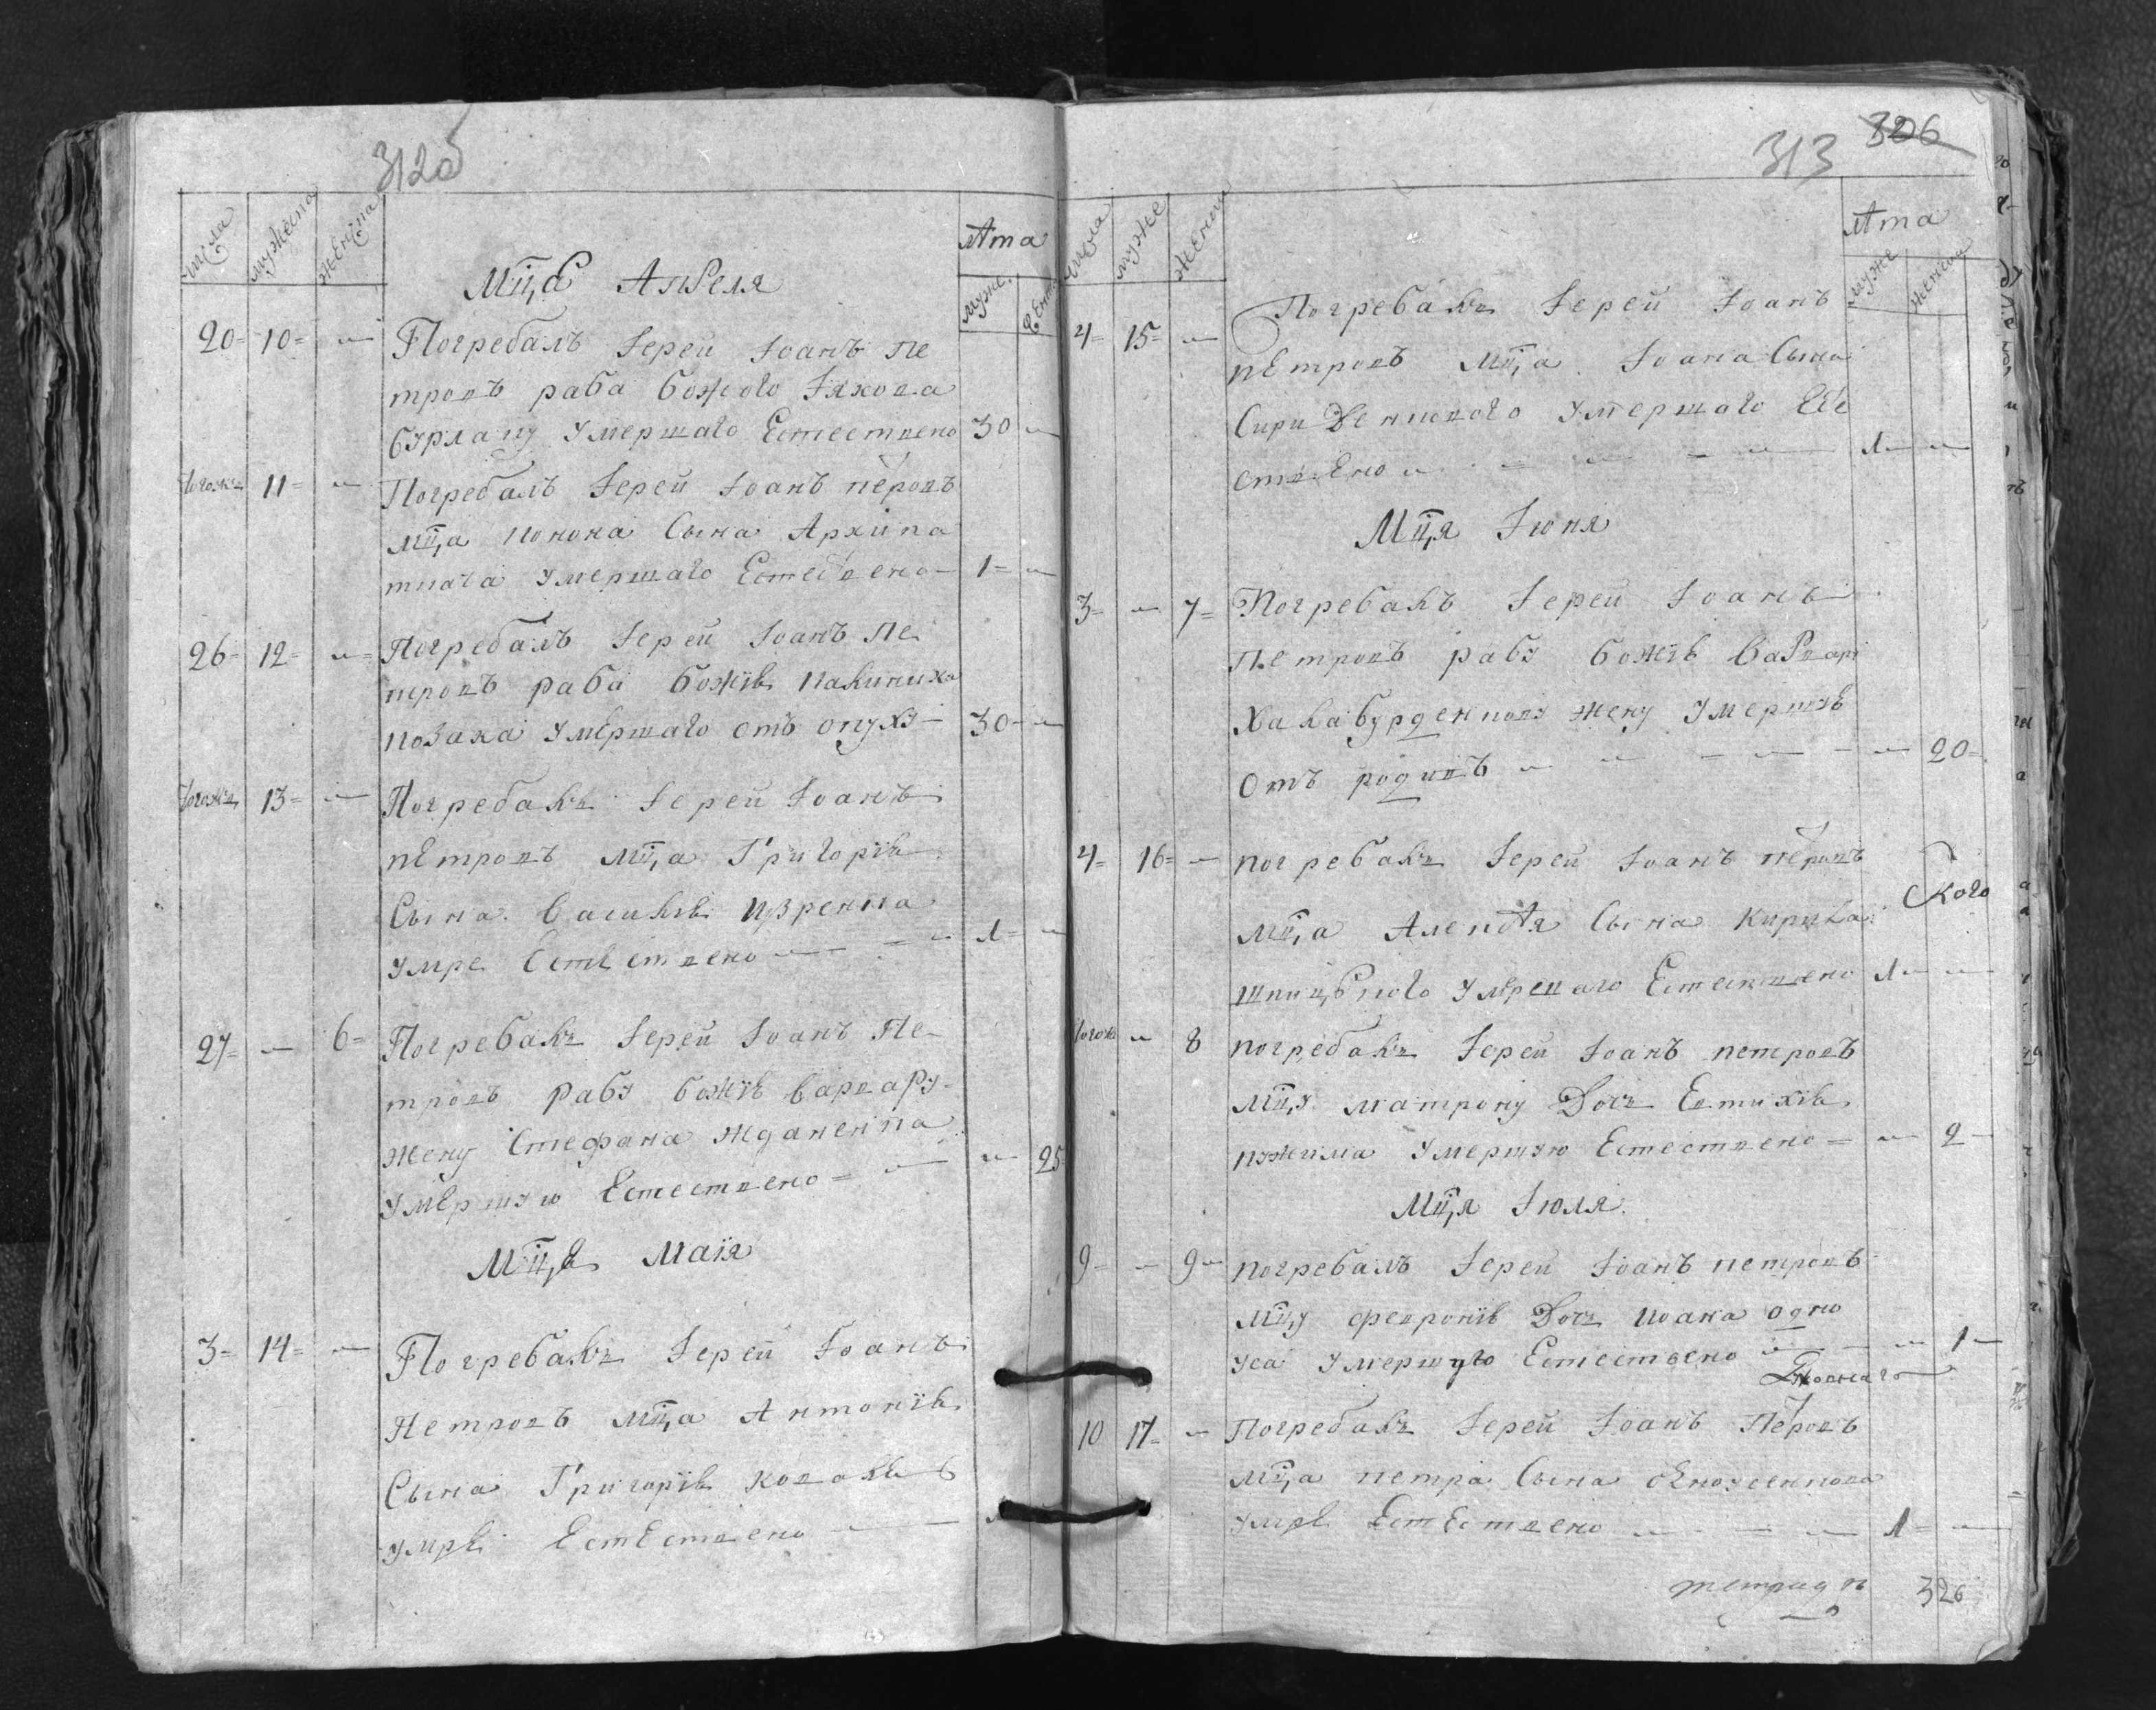 312об
Числа мужеска женска Лѣта муже. женс.
Мц҃а Апреля
20 = 10 = — Погребалъ Іерей Іоанъ Пе
тровъ раба божого Іякова
бурлаку умершаго Естествено 30 —
Тогожъ 11 = — Погребалъ Іерей Іоанъ петровъ
мц҃а Конона Сына Архипа
ткача умершаго Естествено — 1 = —
26 = 12 = — Погребалъ Іерей Іоанъ Пе
тровъ раба божія
козака умершаго отъ опуху — 30 — —
Тогожъ 13 = — Погребалъ Іерей Іоанъ
петровъ мц҃а Григорія
Сына Василія
умре Естествено — = — 1 = —
27 = — 6 = Погребалъ Іерей Іоанъ Пе-
тровъ рабу божію варвару
жену Стефана жданенка
умершую Естествено = — — 25
Мц҃я Маія
3 = 14 = — Погребалъ Іерей Іоанъ
Петровъ мц҃а Антонія
Сына Григорія коваля
умре Естествено —
313 326
Числа муже женска Лѣта муже женска
4 = 15 = — Погребалъ Іерей Іоанъ
петровъ мц҃а Іоана Сына
умершаго Есте
ствено — 1 — —
Мц҃я Іюня
3 = — 7 = Погребалъ Іерей Іоанъ
Петровъ рабу божію
жену умершую
отъ родивъ — 20 =
4 = 16 = — погребалъ Іерей Іоанъ петровъ
мц҃а Алексѣя Сына Кирила ского
умершаго Естествено 1 — —
Тогожъ — 8 погребалъ Іерей Іоанъ петровъ
мц҃у матрону Дочь Евтихія
умершую Естествено = — 2 —
Мц҃я Іюля
9 = — 9 — погребалъ Іерей Іоанъ петровъ
мц҃у февронію Дочь Иоана одно
уса умершую Естествено — 1 —
10 17 = — Погребалъ Іерей Іоанъ Петровъ
мц҃а петра Сына
умре Естествено — 1 = —
тетрадь 326